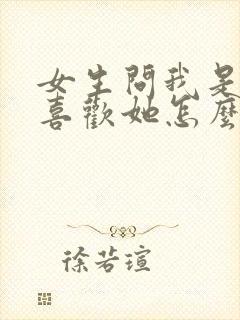 女生問我是
喜歡她怎麼
徐若瑄